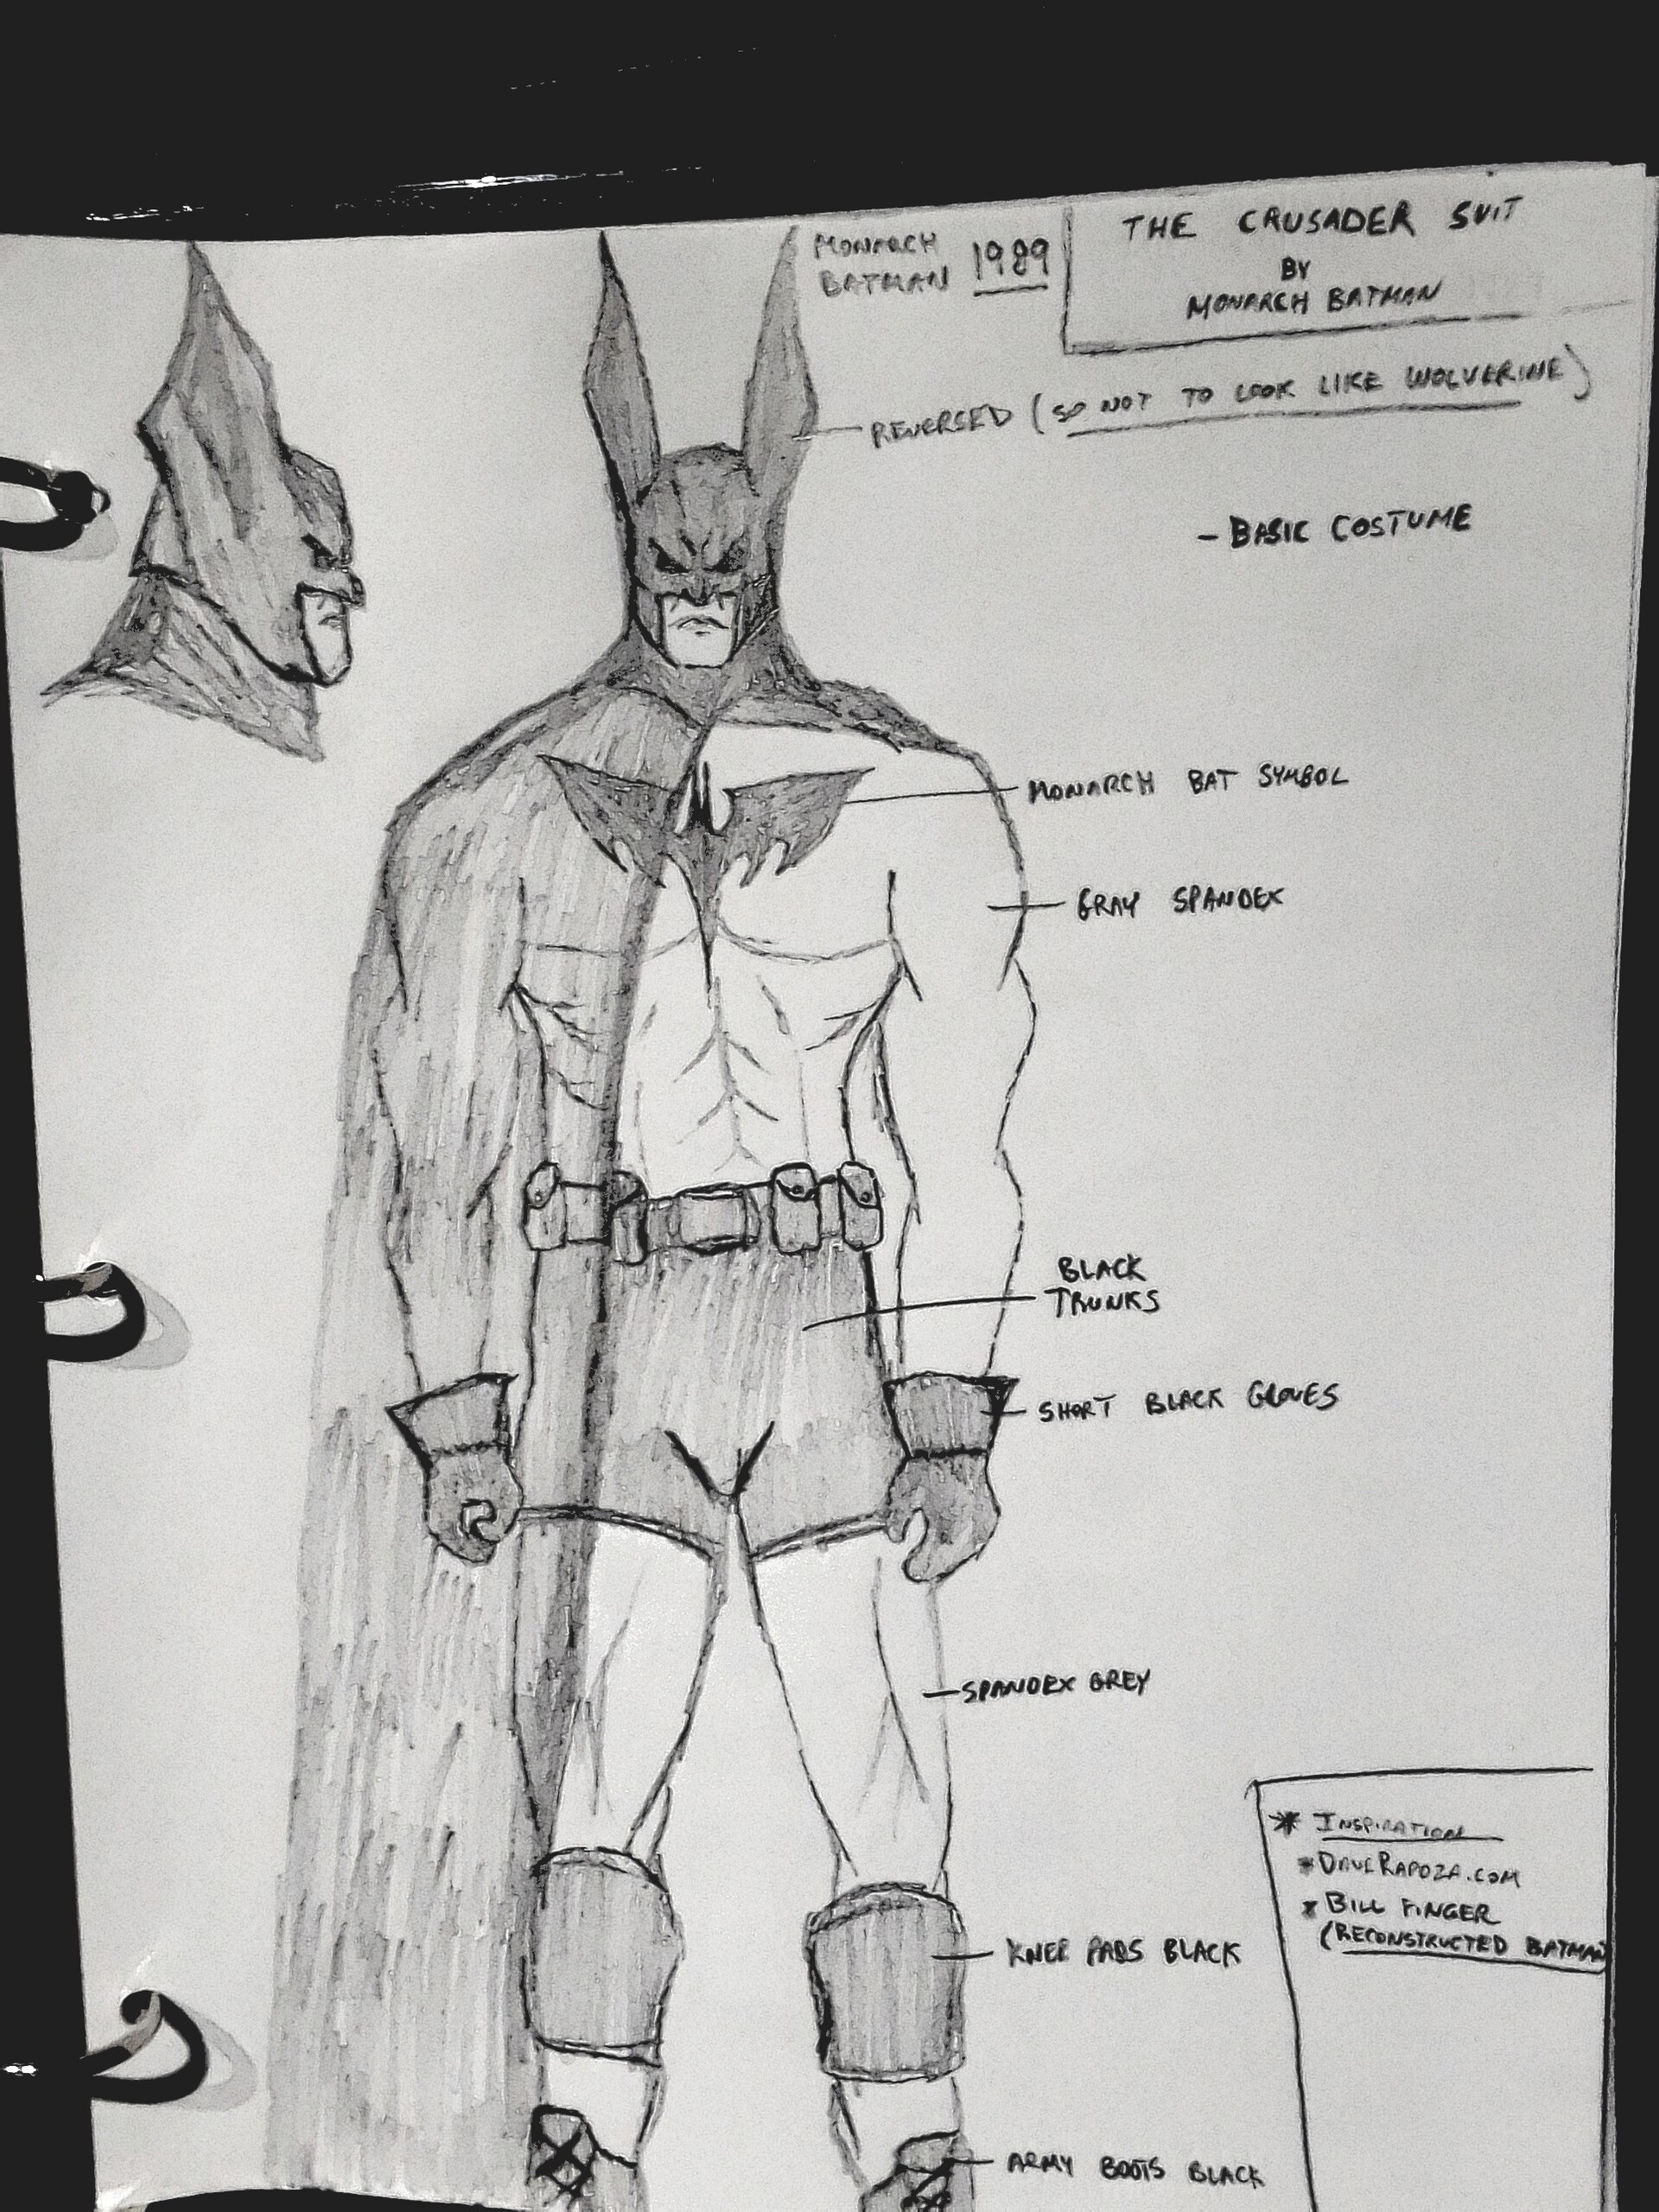 THE CRUSADER SUIT
BY
MONARCH BATMAN
MONARCH
BATMAN 1989
REVERSED (SO NOT TO LOOK LIKE WOLVERINE)
- BASIC COSTUME
MONARCH BAT SYMBOL
GRAY SPANDEX
BLACK
TRUNKS
SHORT BLACK GLOVES
SPANDEX GREY
* INSPIRATION
* DAVERAPOZA.COM
* BILL FINGER
(RECONSTRUCTED BATMAN
KNEE PADS BLACK
ARMY BOOTS BLACK